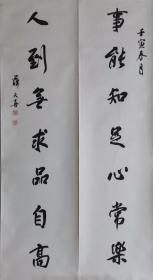 壬寅春月
事能知足心常樂
人到無求品自高